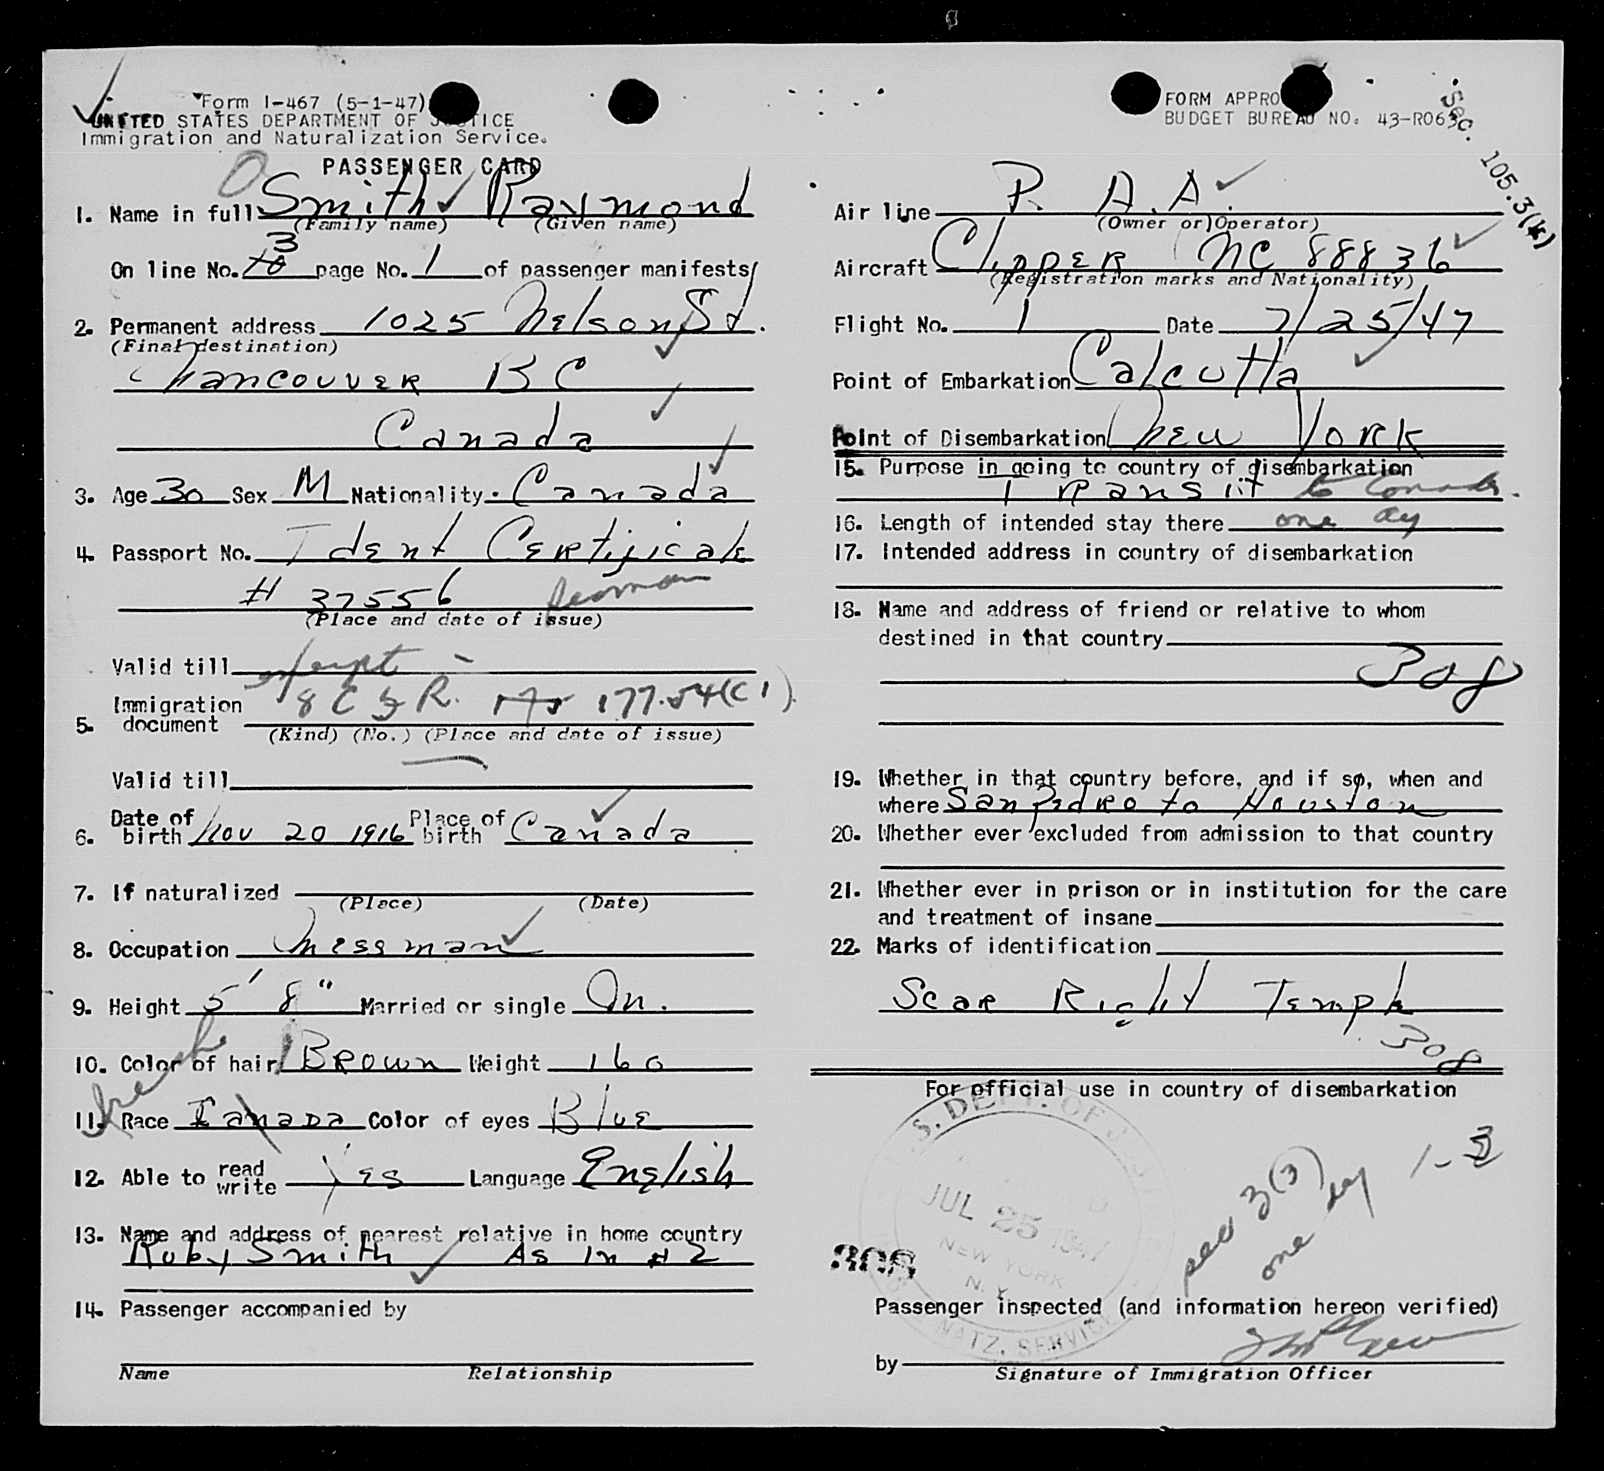 Form I-467 (5-1-47)
UNITED STATES DEPARTMENT OF JUSTICE
Immigration and Naturalization Service.
PASSENGER CARD
1. Name in full Smith Raymond
(Family name) (Given name)
On line No. 3 page No. 1 of passenger manifests
2. Permanent address 1025 Nelson St.
(Final destination)
Vancouver B C
Canada
3. Age 30 Sex M Nationality. Canada
4. Passport No. Ident Certificate
# 37556 Seaman
(Place and date of issue)
Valid till exempt -
5. Immigration document 8 C F R. 177.54(C1).
(Kind) (No.) (Place and date of issue)
Valid till
6. Date of birth Nov 20 1916 Place of birth Canada
7. If naturalized
(Place) (Date)
8. Occupation Messman
9. Height 5' 8" Married or single M.
10. Color of hair Brown Weight 160
11. Race Canada Color of eyes Blue
12. Able to read write Yes Language English
13. Name and address of nearest relative in home country
Ruby Smith As in # 2
14. Passenger accompanied by
Name Relationship
FORM APPRO
BUDGET BUREAU NO. 43-R063
Sec. 105.3(k)
Air line P. A.A.
(Owner or Operator)
Aircraft Clipper NC 88836
(Registration marks and Nationality)
Flight No. 1 Date 7/25/47
Point of Embarkation Calcutta
Point of Disembarkation New York
15. Purpose in going to country of disembarkation
Transit to Canada.
16. Length of intended stay there one day
17. Intended address in country of disembarkation
18. Name and address of friend or relative to whom
destined in that country
308
19. Whether in that country before, and if so, when and
where San Pedro to Houston
20. Whether ever excluded from admission to that country
21. Whether ever in prison or in institution for the care
and treatment of insane
22. Marks of identification
Scar Right Temple
308
For official use in country of disembarkation
S. DEPT. OF J
JUL 25 1947
NEW YORK
N. Y.
NATZ. SERVICE
308
sec 3(3)
one day
1-3
Passenger inspected (and information hereon verified)
by
Signature of Immigration Officer